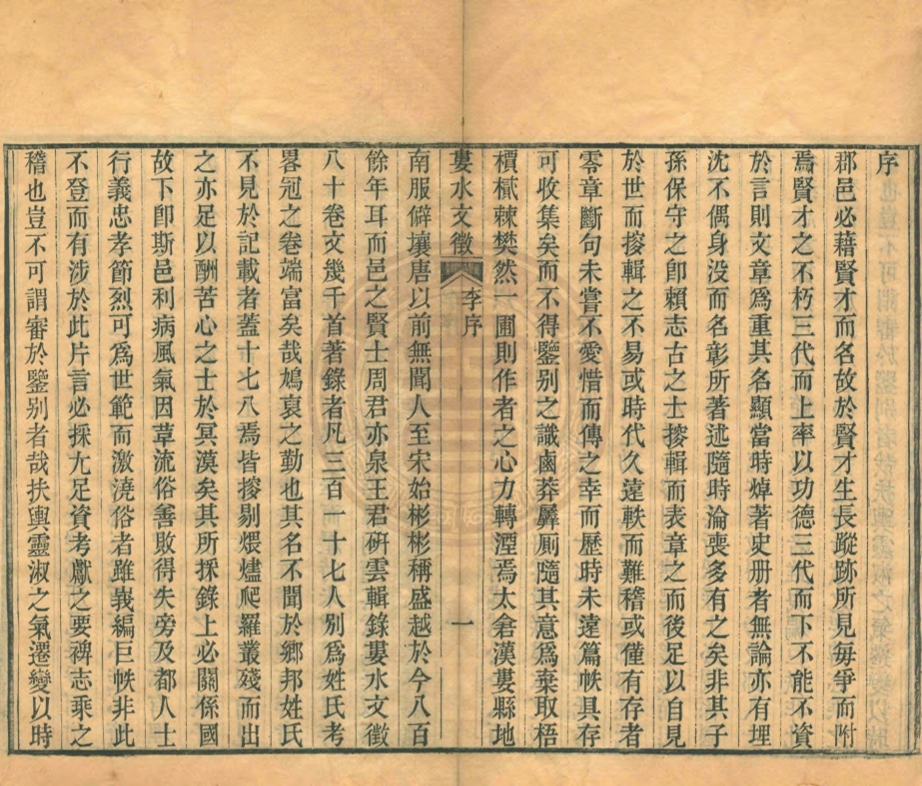 序
郡邑必藉賢才而名故於賢才生長蹤跡所見每爭而附
焉賢才之不朽三代而上率以功德三代而下不能不資
於言則文章爲重其名顯當時焯著史册者無論亦有埋
沈不偶身没而名彰所著述隨時淪喪多有之矣非其子
孫保守之卽賴志古之士搜輯而表章之而後足以自見
於世而搜輯之不易或時代久遠軼而難稽或僅有存者
零章斷句未嘗不愛惜而傳之幸而歷時未遠篇帙具存
可收集矣而不得鑒别之識鹵莽羼厠隨其意爲棄取梧
檟樲棘樊然一圃則作者之心力轉湮焉太倉漢婁縣地
婁水文徵
李序
一
南服僻壤唐以前無聞人至宋始彬彬稱盛越於今八百
餘年耳而邑之賢士周君亦泉王君硏雲輯錄婁水文徵
八十卷文幾千首著錄者凡三百一十七人别爲姓氏考
畧冠之卷端富矣哉鳩裒之勤也其名不聞於鄉邦姓氏
不見於記載者蓋十七八焉皆搜剔煨燼爬羅叢殘而出
之亦足以酬苦心之士於冥漠矣其所採錄上必關係國
故下卽斯邑利病風氣因草流俗善敗得失旁及都人士
行義忠孝節烈可爲世範而激澆俗者雖峩編巨帙非此
不登而有涉於此片言必採尢足資考獻之要裨志乘之
稽也豈不可謂審於鑒别者哉扶輿靈淑之氣遷變以時